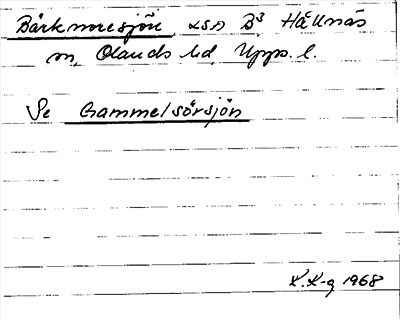 Bärkmoresjön LSA B³ Häknäs
m, Olands hd, Upps. l.
Se Gammelsörsjön
K.K-g 1968